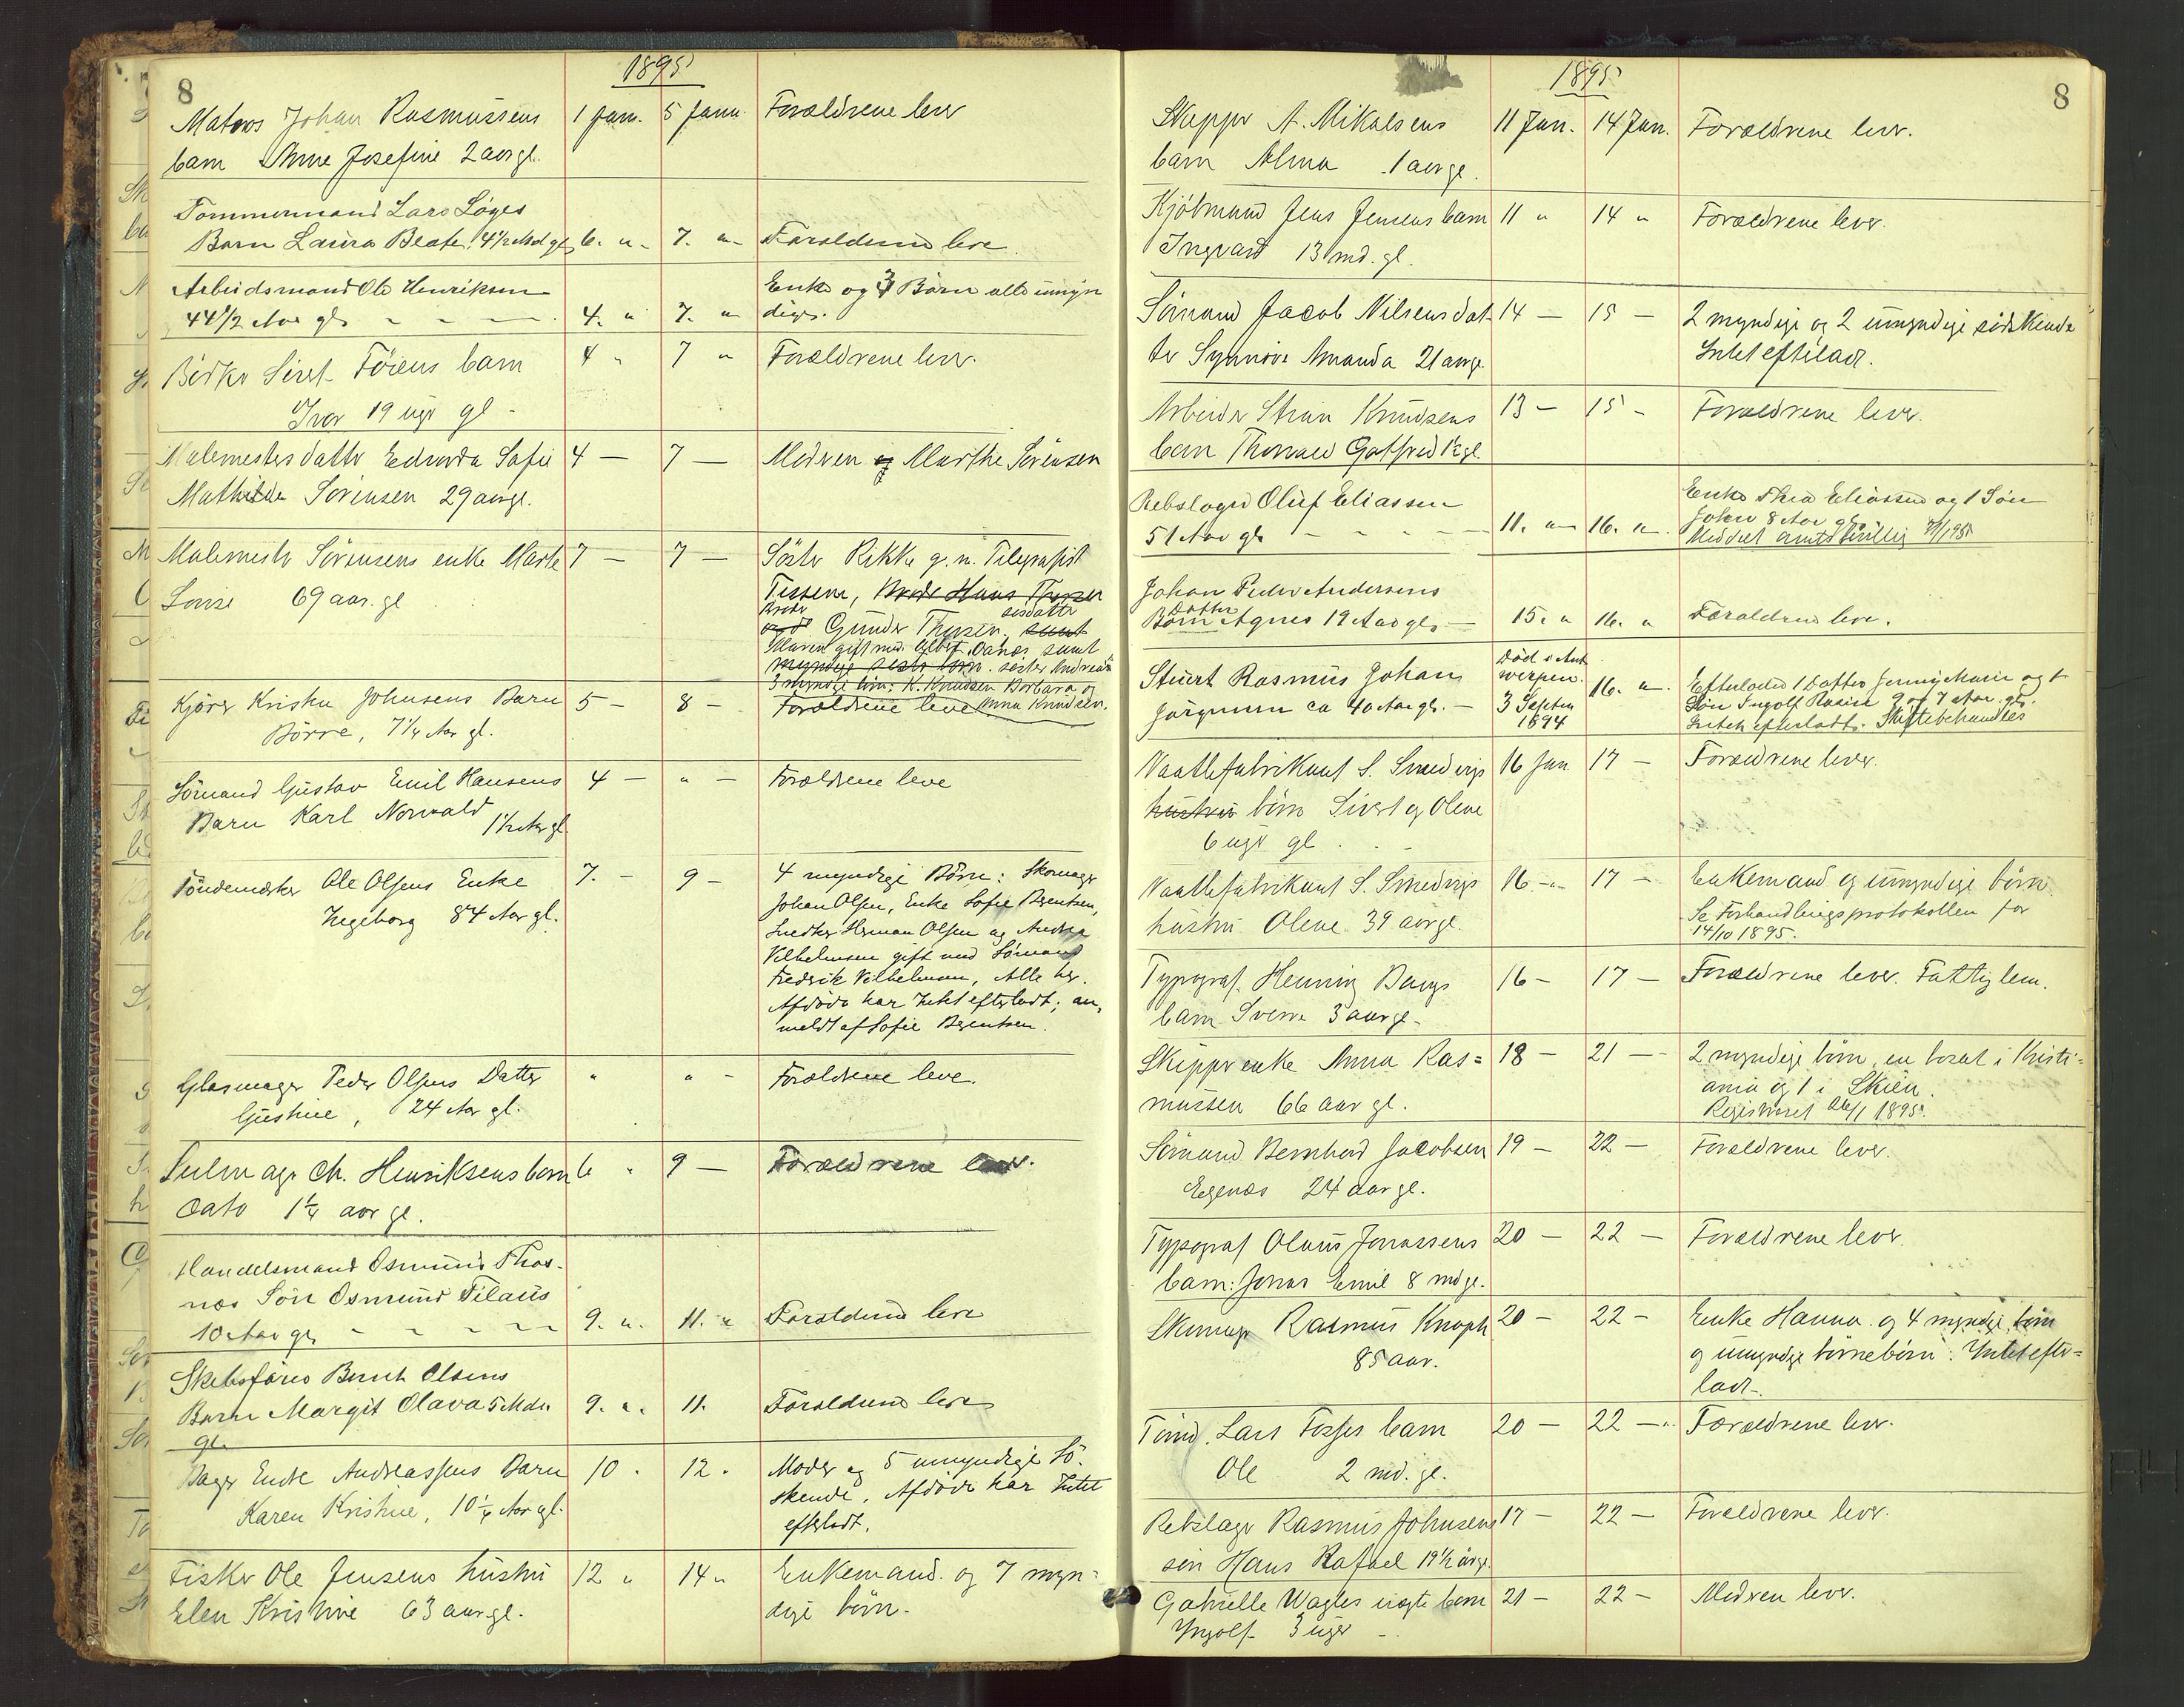 8
1895
Matros Johan Rasmussens 1 Jan. 5 Janu. Forældrene lever
barn Anne Josefine 2 aar gl.
Tømmermand Lars Løges
Barn Laura Beate 4½ Md gl. 6. " 7. " Forældrene leve.
Arbeidsmand Ole Henriksen Enke og 3 Børn alle umyn
44½ Aar gl. - - - 4. " 7. " dige.
Bødker Sivert Føiens barn 4 " 7 " Forældrene lever.
Ivar 19 uger gl -
Malermesters datter Edvarda Sofie 4 — 7 — Moderen Marthe Sørensen
Mathilde Sørensen 29 aar gl.
Malermester Sørensens enke Marte 7 — 7 — Søster Rikke g. m. Telegrafist
Lovise 69 aar. gl Tessem, Broder Hans Thysen
Broder søsdatter
Gunder Thysen. samt
Maren gift med Albert Oanæs samt
myndige søster børn. søster Andrea's
3 myndige børn: K. Knudsen Barbara og
Kjører Kristen Johnsens Barn 5 — 8 — Forældrene leve Anna Knudsen.
Børre, 7¼ Aar gl.
Sømand Gustav Emil Hansens 4 — " — Forældrene leve
Barn Karl Norvald 1½ Aar gl
Tøndemærker Ole Olsens Enke 7. — 9 — 4 myndige Børn: Skomager
Ingeborg 84 Aar gl. Johan Olsen, Enke Sofie Berentsen,
Snedker Herman Olsen og Andrea
Vilhelmsen gift med Sømand
Fredrik Vilhelmsen, Alle her.
Afdøde har Intet efterladt; an,
meldt af Sofie Berentsen.
Glasmager Peder Olsens Datter " " - Forældrene leve.
Gustine, 24 Aar gl.
Seilmager Ch. Henriksens barn 6 " 9 — Forældrene lever.
Cato 1¼ aar gl.
Handelsmand Osmund Thos-
næs Søn Osmund Tilaus
10 Aar gl. - - - - 9. ". 11. " Forældrene leve
Skibsfører Bernt Olsens
Barn Margit Olava 5 Mdr 9. ". 11. Forældrene leve
gl.
Bager Endre Andreassens Barn 10 . 12 . Moder og 5 umyndige Sø-
Karen Kristine, 10¼ Aar gl. skende, Afdøde har Intet
efterladt.
Fisker Ole Jensens hustru 12 " 14 " Enkemand. og 7 myn-
Elen Kristine 63 aar gl. dige børn.
1895
8
Skipper A. Mikalsens 11 Jan. 14 Jan. Forældrene lever.
barn Alma 1 aar gl.
Kjøbmand Jens Jensens barn 11 " 14 " Forældrene lever.
Ingvard 13 md. gl.
Sømand Jacob Nilsens dat- 14 — 15 — 2 myndige og 2 umyndige sødskende
ter Synnøve Amanda 21 aar gl. Intet efterladt.
Arbeider Stian Knudsens 13 — 15 - Forældrene lever.
barn Thorvald Gotfred 1½ gl.
Rebslager Oluf Eliassen Enke Thea Eliassen og 1 Søn
51 Aar gl. - - - - 11. " 16. " John 8 Aar gl.
Meddelt amtsbevillig
Johan Peder Andersens
Datter
Barn Agnes 19 Aar gl. — 15. " 16. " Forældrene leve.
Stuert Rasmus Johan Død i Ant
werpen.
Jørgensen ca 40 Aar gl. — 3 Septem 16. " Efterlader 1 Datter Jenny Marie og 1
1894 Søn Ingolf Rasin 9 og 7 Aar. gl.
Intet efterladt. Skiftebehandles
Vaattefabrikant S. Smedvigs 16 Jan 17 — Forældrene lever.
hustru børn Sivert og Olene
6 uger gl . . -
Vaattefabrikant S. Smedvigs 16. -"- 17 — Enkemand og umyndige børn.
hustru Olene 39 aar gl. Se Forhandlingsprotokollen for
14/10 1895.
Typograf. Henning Bangs 16 — 17 — Forældrene lever. Fattiglem.
barn Sverre 3 aar gl -
Skipper enke Anna Ras= 18 — 21 — 2 myndige børn, en bosat i Kristi=
mussen 66 aar gl. ania og 1 i Skien.
Registreret 26/1 1895.
Sømand Bernhard Jacobsen 19 — 22 — Forældrene lever.
Egenæs 24 aar gl.
Typograf Olaus Jonassens 20 — 22 — Forældrene lever.
barn: Jonas Emil 8 md gl.
Skomager Rasmus Knoph 20 — 22 — Enke Hanna. og 4 myndige børn
85 aar. og umyndige børnebørn. Intet efter=
ladt.
Tømd. Lars Fosses barn 20 — 22 — Forældrene lever.
Ole 2 md. gl.
Rebslager Rasmus Johnsens 17 — 22 — Forældrene lever.
søn Hans Rafael 19½ år gl.
Gabrielle Wagles uægte barn 21 — 22 — Moderen lever.
Yngolf 3 uger -